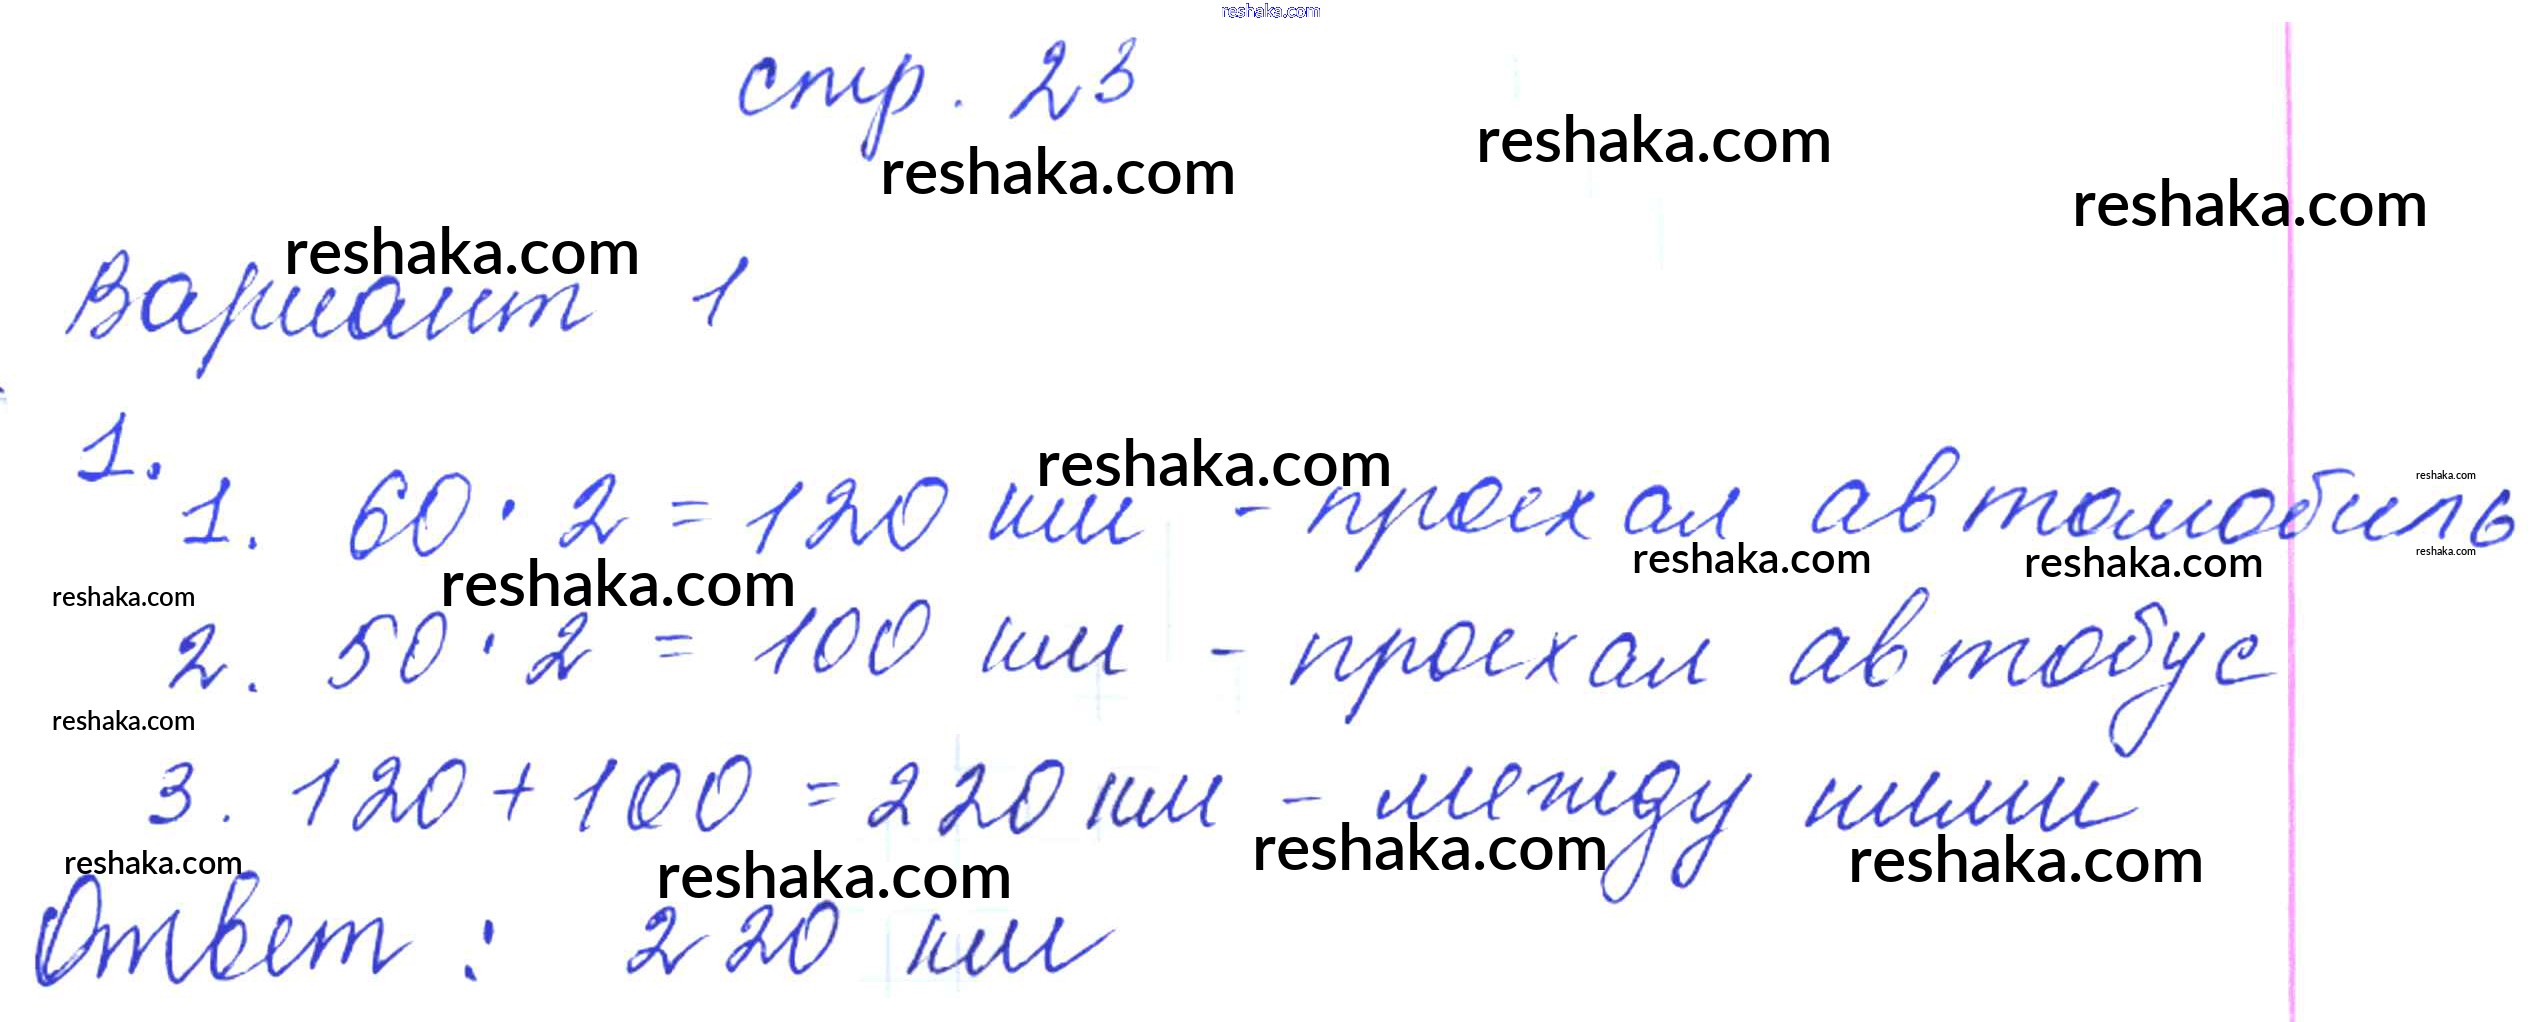 reshaka.com
стр. 23
reshaka.com
reshaka.com
reshaka.com
reshaka.com
Вариант 1
1.
reshaka.com
reshaka.com
1. 60 · 2 = 120 км - проехал автомобиль
reshaka.com
reshaka.com
reshaka.com
reshaka.com
reshaka.com
2. 50 · 2 = 100 км - проехал автобус
reshaka.com
3. 120 + 100 = 220 км - между ними
reshaka.com
reshaka.com
reshaka.com
reshaka.com
Ответ: 220 км